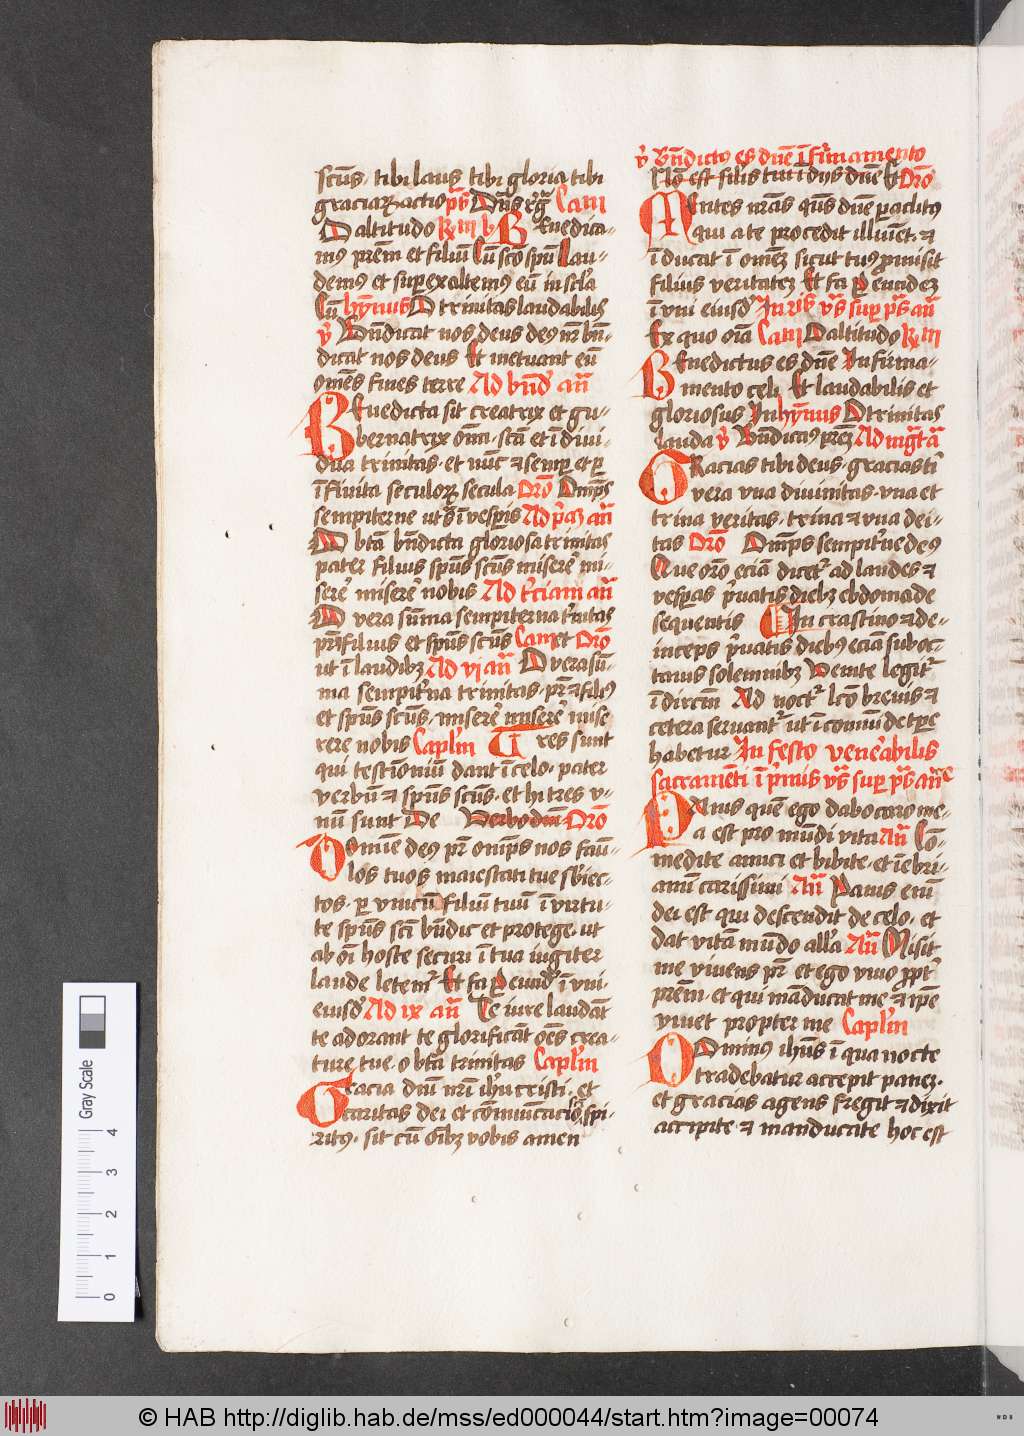 scūs, tibi laus tibi gloria tibi
graciaꝝ actio p̄s Dn̄s erḡ Capi
D altitudo R m b Benedica-
mꝰ prēm et filiū Cū sc̄o spū Lau-
demꝰ et superexaltemꝰ eū in sc̄la
Cū hȳmus D trinitas laudabilis
v̄ Bn̄dicat nos deus deꝰ nr̄ bn̄-
dicat nos deus Et metuant eū
om̄es fines terre Ad bn̄d an̄
Benedicta sit creatrix et gu-
bernatrix om̄ sc̄a et īdivi-
dua trinitas et nūc ⁊ semp et p
īfinita seculoꝝ secula Orō Om̄ps
sempiterne ut s ī vesp̄is Ad p̄aȝ an̄
D bt̄a bn̄dicta gloriosa trinitas
pater filius spūs scūs miserē mi-
serē miserē nobis Ad t̄ciam an̄
D vera sūma sempiterna trīnitas
pr̄ filius et spūs scūs Cam et Orō
ut ī laudibȝ Ad vi an̄ D vera sū-
ma sempit̄na trinitas pr̄ ⁊ filiꝰ
et spūs scūs miserē miserē mise
rere nobis Caplm̄ Tres sunt
qui testīoniū dant ī celo, pater
verbū ⁊ spūs scūs, et hi tres v-
nū sunt De Verbo dn̄i Orō
Domīe deꝰ pr̄ om̄ps nos fāu-
los tuos maiestati tue sbiec-
tos p vnicū filiū tuū ī virtu-
te spūs sc̄i bn̄dic et protege, ut
ab oī hoste securi ī tua iugiter
laude letem̄ Et fa P eiusd ī vni-
eiusd Ad ix an̄ Te iure laudāt
te adorant te glorificāt oēs crea-
ture tue o bt̄a trinitas Caplm̄
Gracia dn̄i nr̄i ihū cristi, et
caritas dei et cōmūicacio sc̄i spi-
ritꝰ, sit cū oībȝ vobis amen
v̄ Bn̄dictus es dn̄e ī firmamento
Nō est filis tui ī dijs dn̄e Et Orō
Mentes nr̄as qn̄s dn̄e paclitꝰ
qui a te procedit illūiet, ⁊
īducat ī omēȝ sicut tuꝰ promisit
filius veritateȝ Et fa P eiusdeȝ
ī vni eiusd In ij vs̄ sup p̄s an̄
Ex quo oīa Capi D altitudo R m
Benedictus es dn̄e In firma-
mento celi, Et laudabilis et
gloriosus In hȳmus D trinitas
lauda v̄ Bn̄dicaꝰ prēȝ Ad mḡta
Gracias tibi deus, gracias ti
vera vna divinitas, vna et
trina veritas, trina ⁊ vna dei-
tas Orō Om̄ps sempit̄ne deꝰ
Que orō eciā dicet̄ ad laudes ⁊
vesp̄as p̄vatis diebȝ ebdomade
sequentis In crastino ⁊ de-
inceps p̄vatis diebꝰ eciā sub oc-
tavis solemnibȝ Venite legit̄
ī directū Ad noct̄ lc̄o brevis ⁊
cetera servant̄ ut ī comūi de tp̄e
habetur In festo venerabilis
sacramēti ī p̄mis vs̄ sup p̄s an̄e
Panis quē ego dabo caro me-
a est pro mūdi vita An̄ Co-
medite amici et bibite, et īebri-
amī carissimi An̄ Panis enī
dei est qui descendit de celo, et
dat vitā mūdo all'a An̄ Misit
me vivens pr̄ et ego vivo p̄pt̄
prēm, et qui māducat me ⁊ ip̄e
vivet propter me Caplm̄
Dominꝰ ihūs ī qua nocte
tradebatur accepit paneȝ,
et gracias agens fregit ⁊ dixit
accipite ⁊ manducate hoc est
Gray Scale
0 1 2 3 4
© HAB http://diglib.hab.de/mss/ed000044/start.htm?image=00074